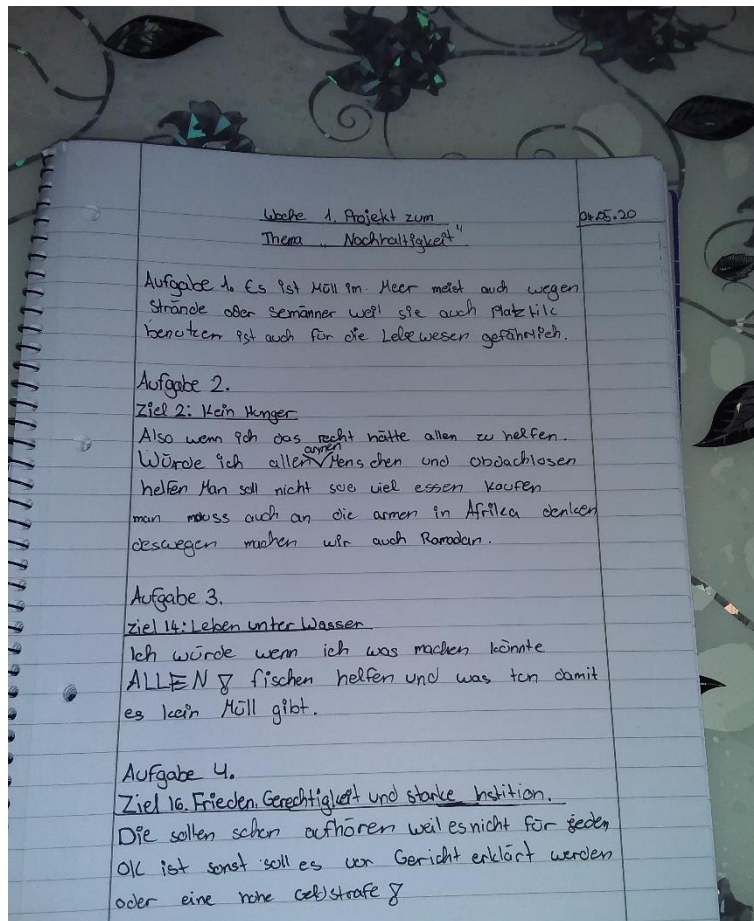 Woche 1. Projekt zum
04.05.20
Thema „Nachhaltigkeit"
Aufgabe 1. Es ist Müll im Meer meist auch wegen
Strände oder Semänner weil sie auch Platztik
benutzen ist auch für die Lebewesen gefährlich.
Aufgabe 2.
Ziel 2: Kein Hunger
Also wenn ich das recht hätte allen zu helfen.
Würde ich allen armen Menschen und obdachlosen
helfen Man soll nicht soe viel essen kaufen
man mouss auch an die armen in Afrika denken
deswegen machen wir auch Ramadan.
Aufgabe 3.
Ziel 14: Leben unter Wasser
Ich würde wenn ich was machen könnte
ALLEN ! fischen helfen und was tun damit
es kein Müll gibt.
Aufgabe 4.
Ziel 16. Frieden, Gerechtigkeit und starke Instition.
Die sollen schon aufhören weil es nicht für jeden
OK ist sonst soll es vor Gericht erklärt werden
oder eine hohe Geldstrafe !